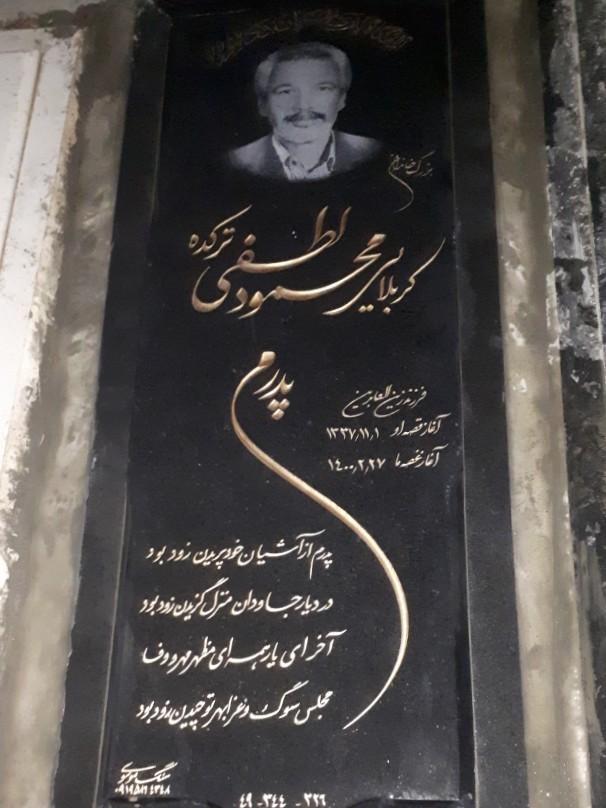 بزرگ خاندان
کربلایی محمود لطفی ترکده
پدرم
فرزند زین العابدین
آغاز قصه او ۱۳۳۷/۱۱/۱
آغاز غصه ما ۱۴۰۰/۲/۲۷
پدرم از آشیان خود پریدن زود بود
در دیار جاودان منزل گزیدن زود بود
آخر ای یار همه ای مظهر مهر و وفا
مجلس سوگ و عزا بهر تو چیدن زود بود
سنگ موسوی
۳۲۶ - ۳۴۴ - ۴۹